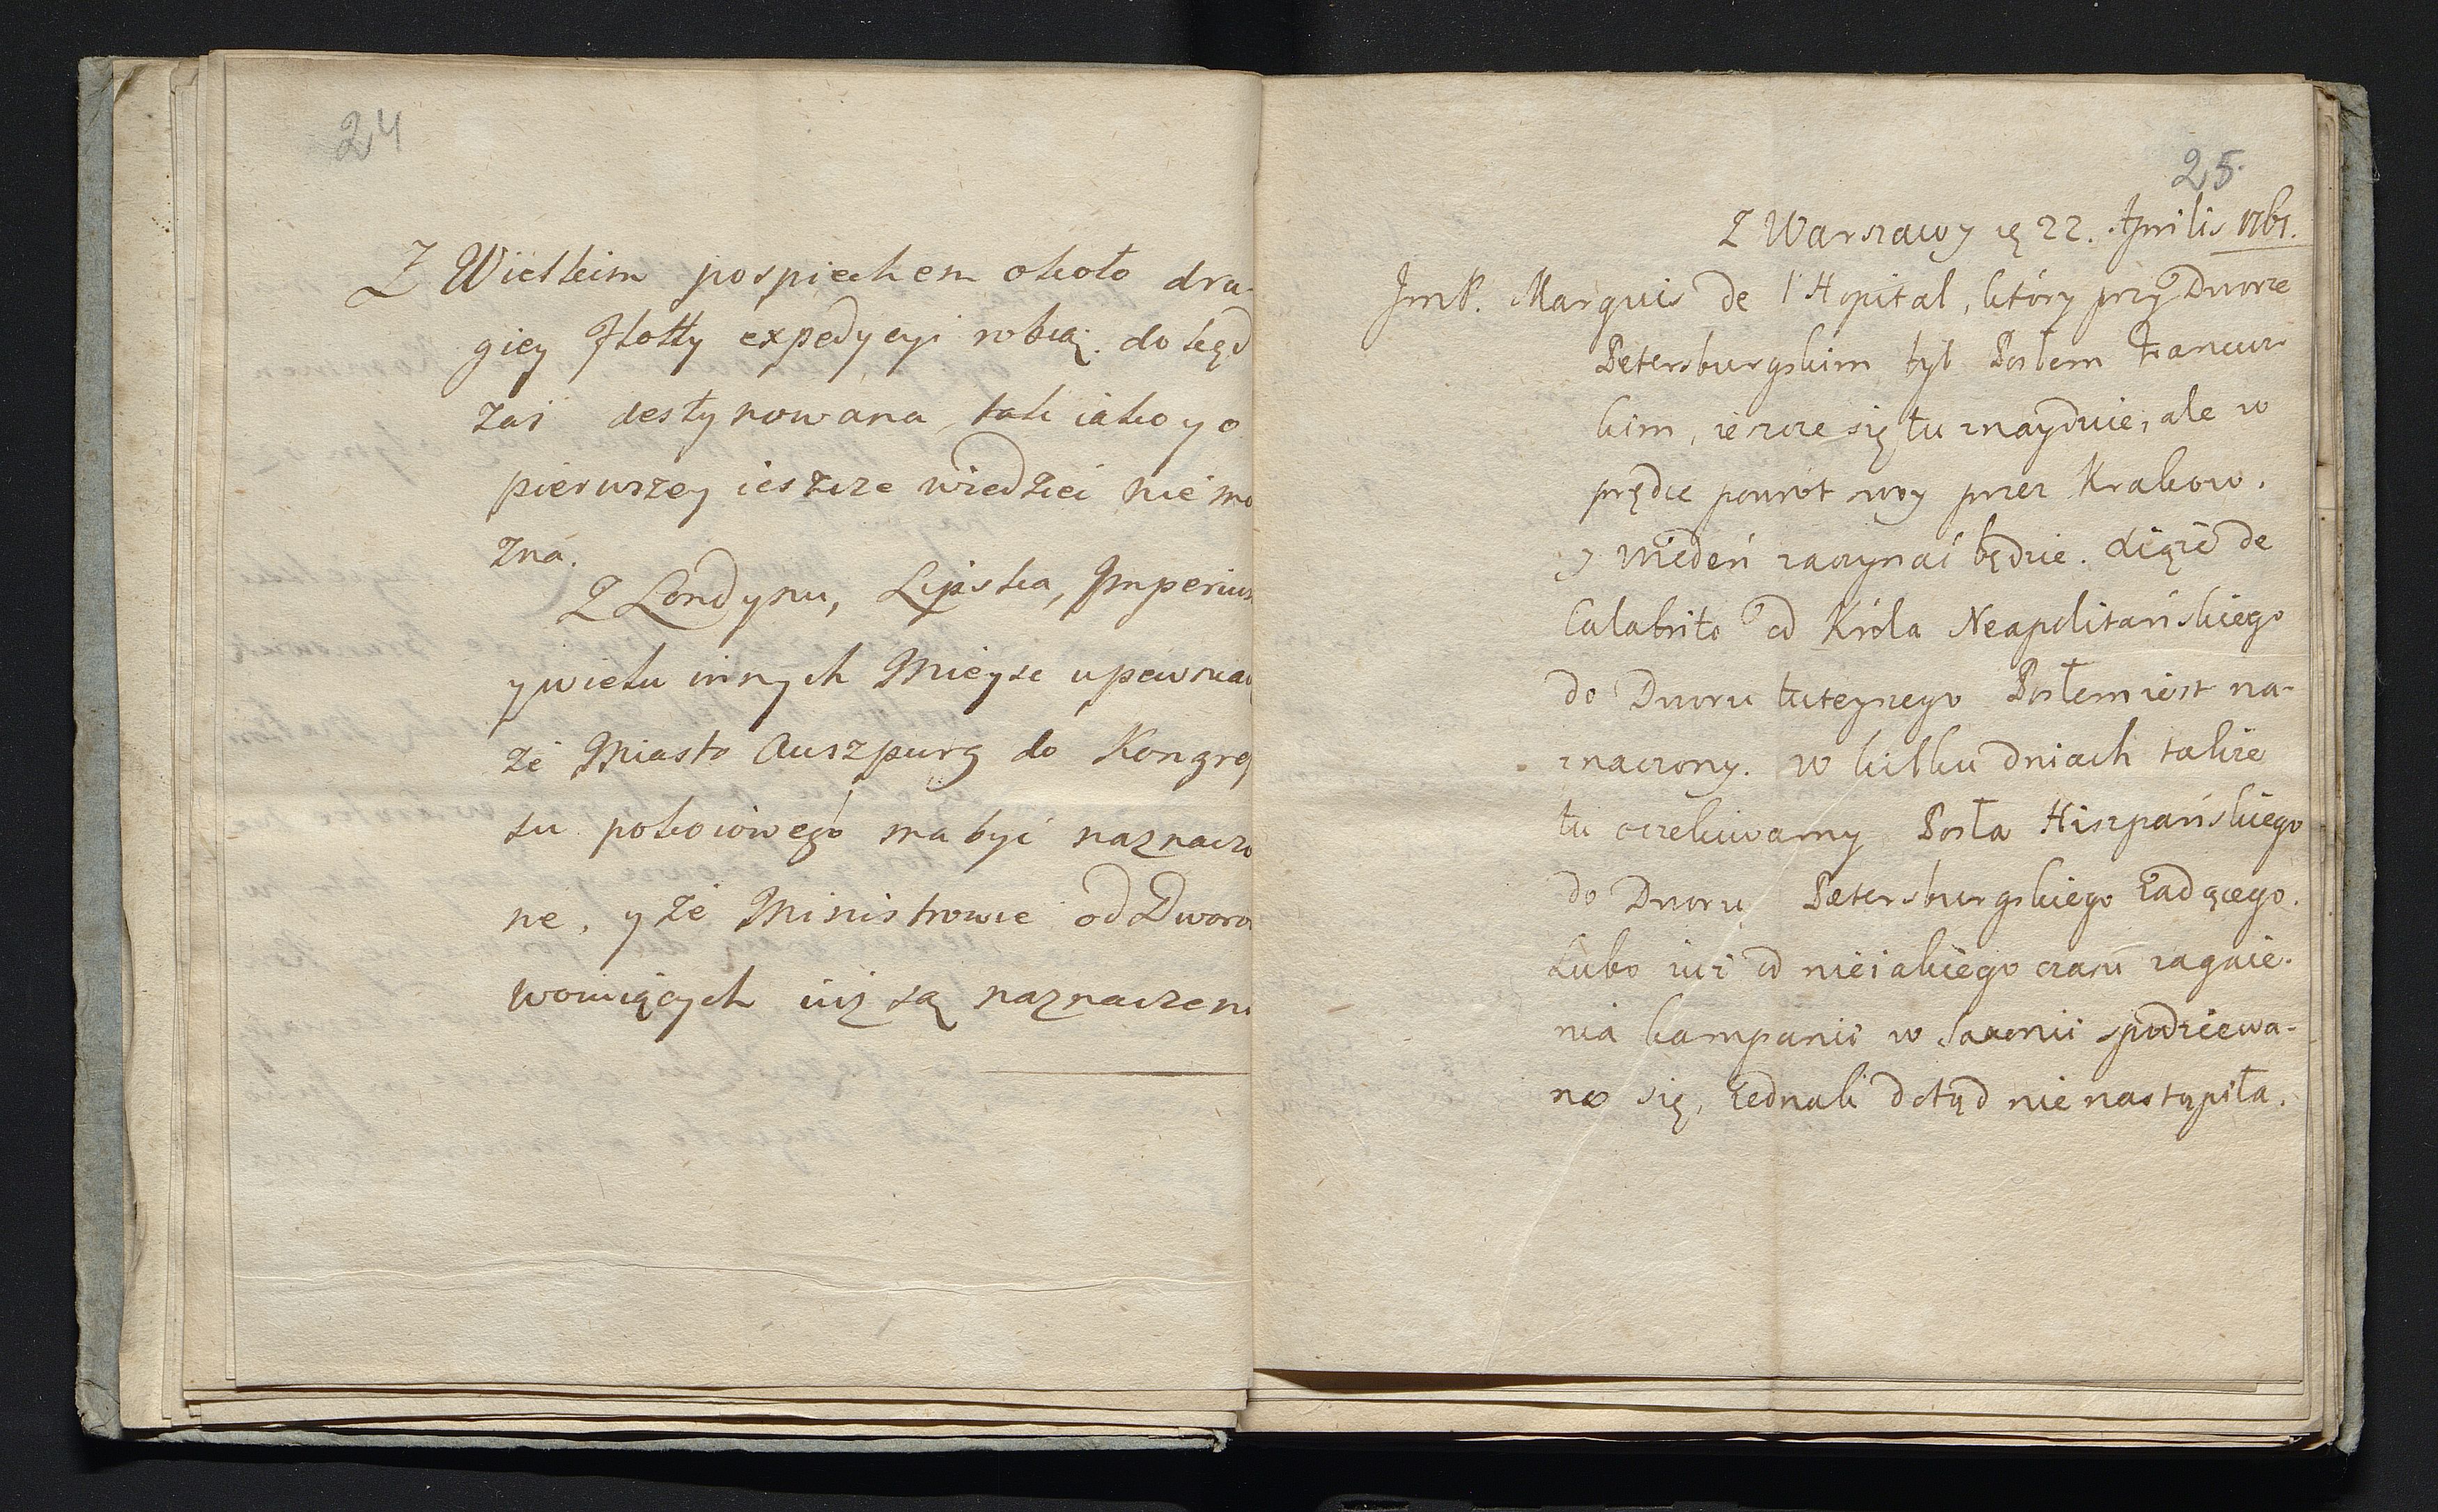 24
Z Wielkim pospiechem około dru-
giey Flotty expedycyi robią. dokąd
zaś destynowana, tak iako y o
pierwszey ieszcze wiedzieć nie mo
żna.
Z Londynu, Lipska, Imperium
y wielu innych Mieysc upewniaią
że Miasto Auszpurg do Kongres
su pokoiowego ma być naznaczo
ne, y że Ministrowie od Dworow
woiuiących iuż są naznaczeni
25.
Z Warszawy 22. Aprilis 1761.
JmP. Marquis de l'Hopital, który przy Dworze
Petersburgskim był Posłem Francuz-
kim, ieszcze się tu znayduie, ale w
prędce powrót swoy przez Krakow.
y Wiedeń zaczynać będzie. Xiąże de
Calabrito od Króla Neapolitańskiego
do Dworu tuteyszego Posłem iest na-
znaczony. w kilku dniach także
tu oczekiwamy Posła Hiszpańskiego
do Dworu Petersburgskiego iadącego.
Lubo iuż od nieiakiego czasu zagaie-
nia kampanii w Saxonii spodziewa-
no się, iednak dotąd nie nastąpiła.